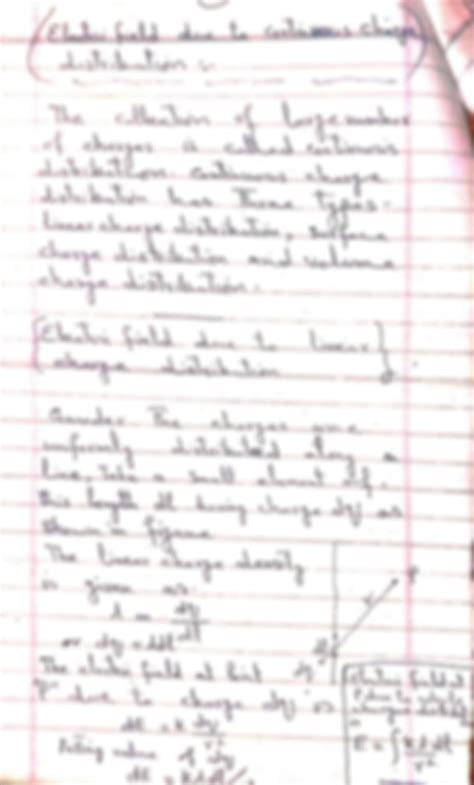 Electric field due to continuous charge
distribution :-
The collection of large number
of charges is called continuous
distribution continuous charge
distribution has Three types.
linear charge distribution, surface
charge distribution and volume
charge distribution.
Electric field due to linear
charge distribution
Consider The charges are
uniformly distributed along a
line, take a small element of
this length dl having charge dq as
shown in figure
The linear charge density
is given as
λ = dq/dl
or dq = λdl
The electric field at Point
P due to charge dq is
dE = k dq/r²
Putting value of dq
dE = kλdl/
P
r
dq
Electric field at
P due to whole
E = ∫ kλdl/r²